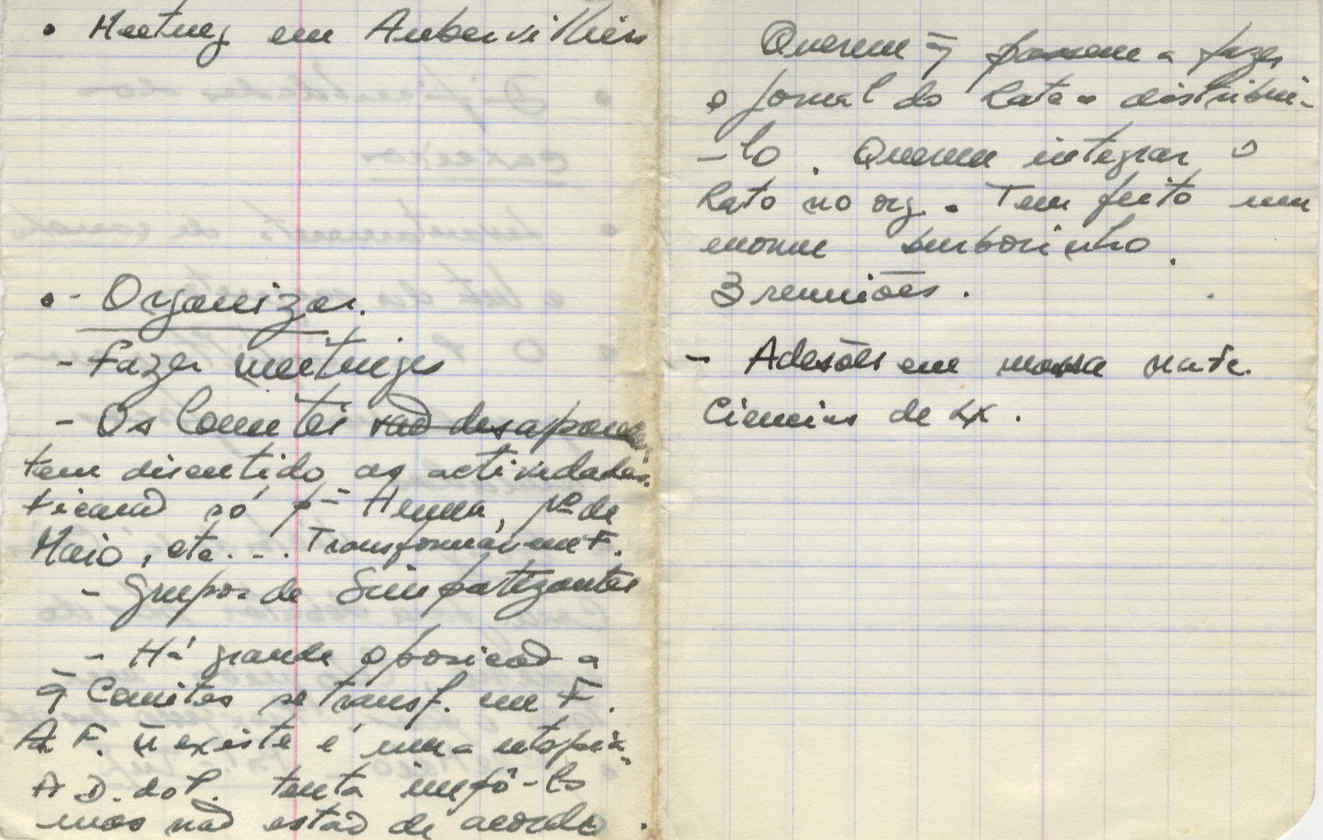 • Meeting em Aubervilliers
• - Organizar.
- Fazer meetings
- Os Comités não desaparecem,
tem discutido as actividades.
ficarão só p- Huma, 1º de
Maio, etc... Transformar em F.
- Grupos de Simpatizantes
- Há grande oposicão a
q̄ Comites se transf. em F.
A F. ñ existe é uma utopia.
A D. do P. tenta impô-lo
mas não estão de acordo.
Querem q̄ passem a fazer
o jornal do Cate e distribui-
-lo. Querem integrar o
Cate no org. Tem feito um
enorme burborinho.
3 reuniões.
- Adesões em massa na F.
Ciencias de Lx.